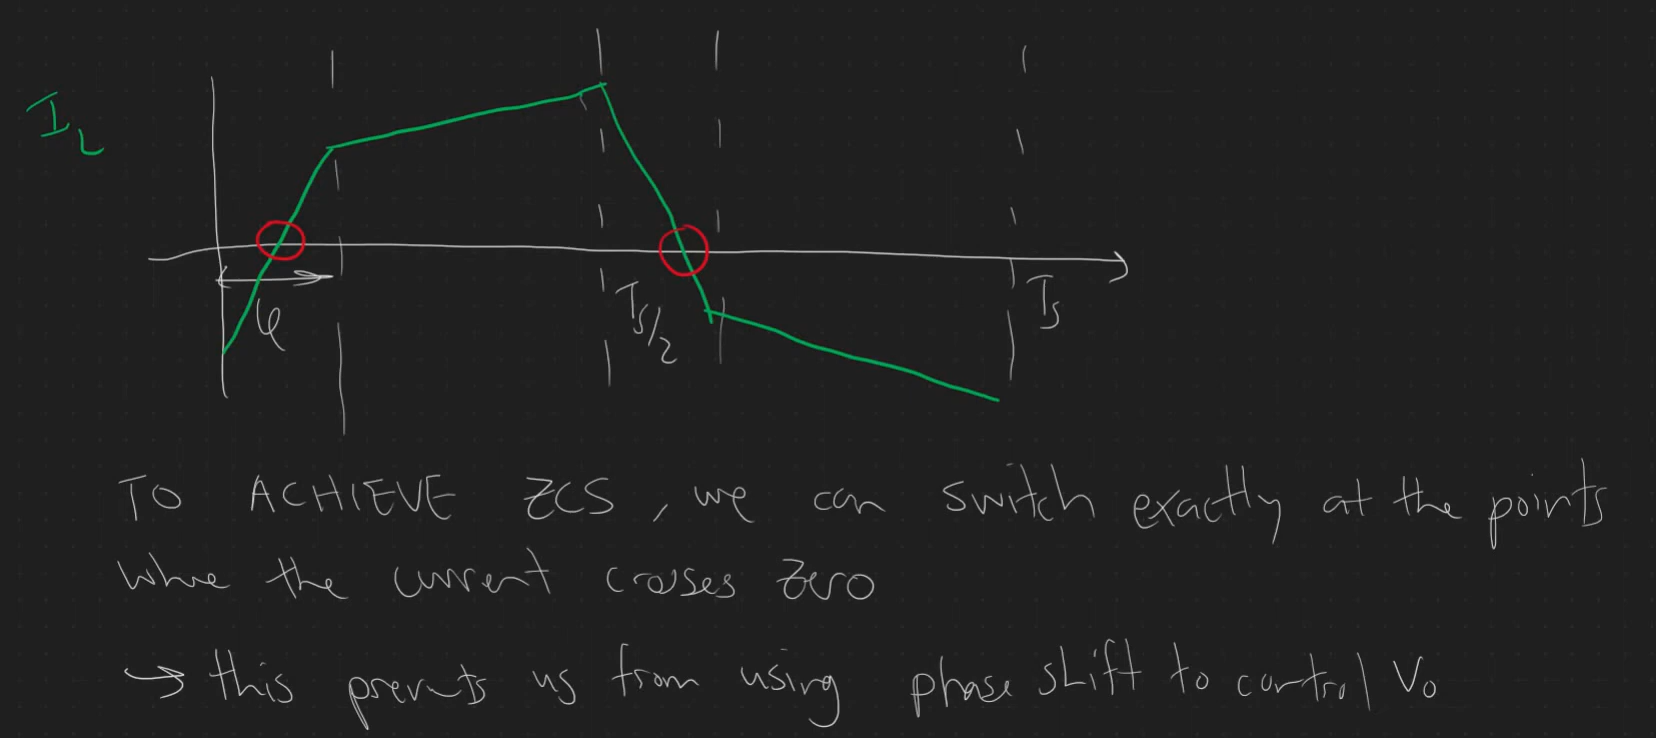 I_L
φ
Ts/2
Ts
TO ACHIEVE ZCS, we can switch exactly at the points
where the current crosses zero
→ this prevents us from using phase shift to control Vo